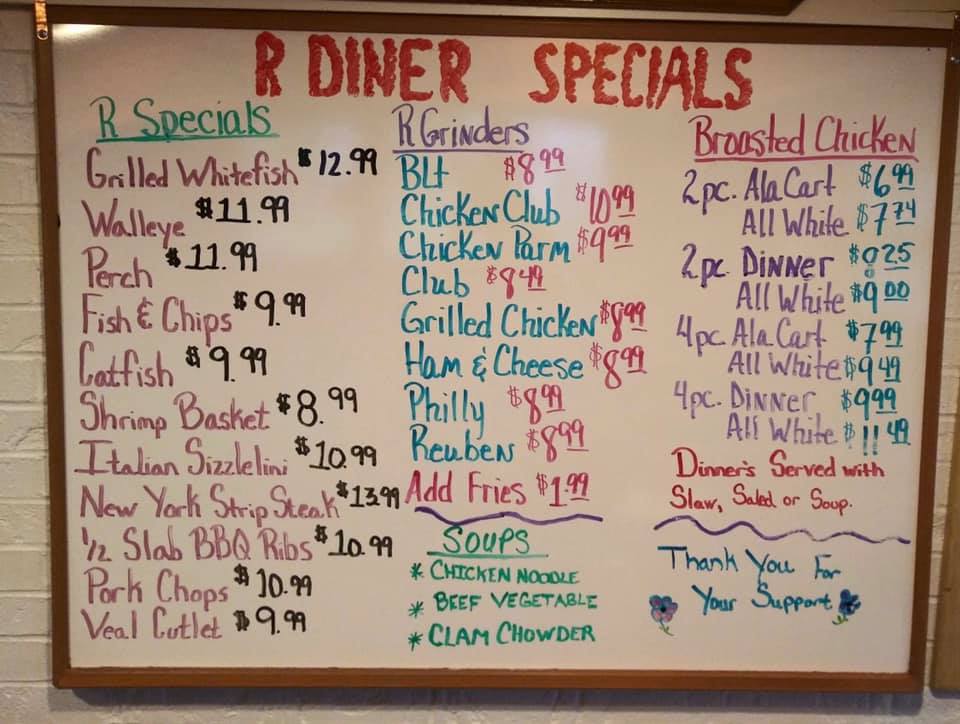 R DINER SPECIALS
R Specials
Grilled Whitefish $12.99
Walleye $11.99
Perch $11.99
Fish & Chips $9.99
Catfish $9.99
Shrimp Basket $8.99
Italian Sizzlelini $10.99
New York Strip Steak $13.99
1/2 Slab BBQ Ribs $10.99
Pork Chops $10.99
Veal Cutlet $9.99
R Grinders
BLt $8.99
Chicken Club $10.99
Chicken Parm $9.99
Club $8.49
Grilled Chicken $8.99
Ham & Cheese $8.99
Philly $8.99
Reuben $8.99
Add Fries $1.99
SOUPS
* CHICKEN NOODLE
* BEEF VEGETABLE
* CLAM CHOWDER
Broasted Chicken
2pc. Ala Cart $6.99
All White $7.74
2pc. Dinner
All White $9.00
4pc. Ala Cart $7.99
All White $9.49
4pc. Dinner $9.99
All White $11.49
Dinner's Served with
Slaw, Salad or Soup.
Thank You For
Your Support